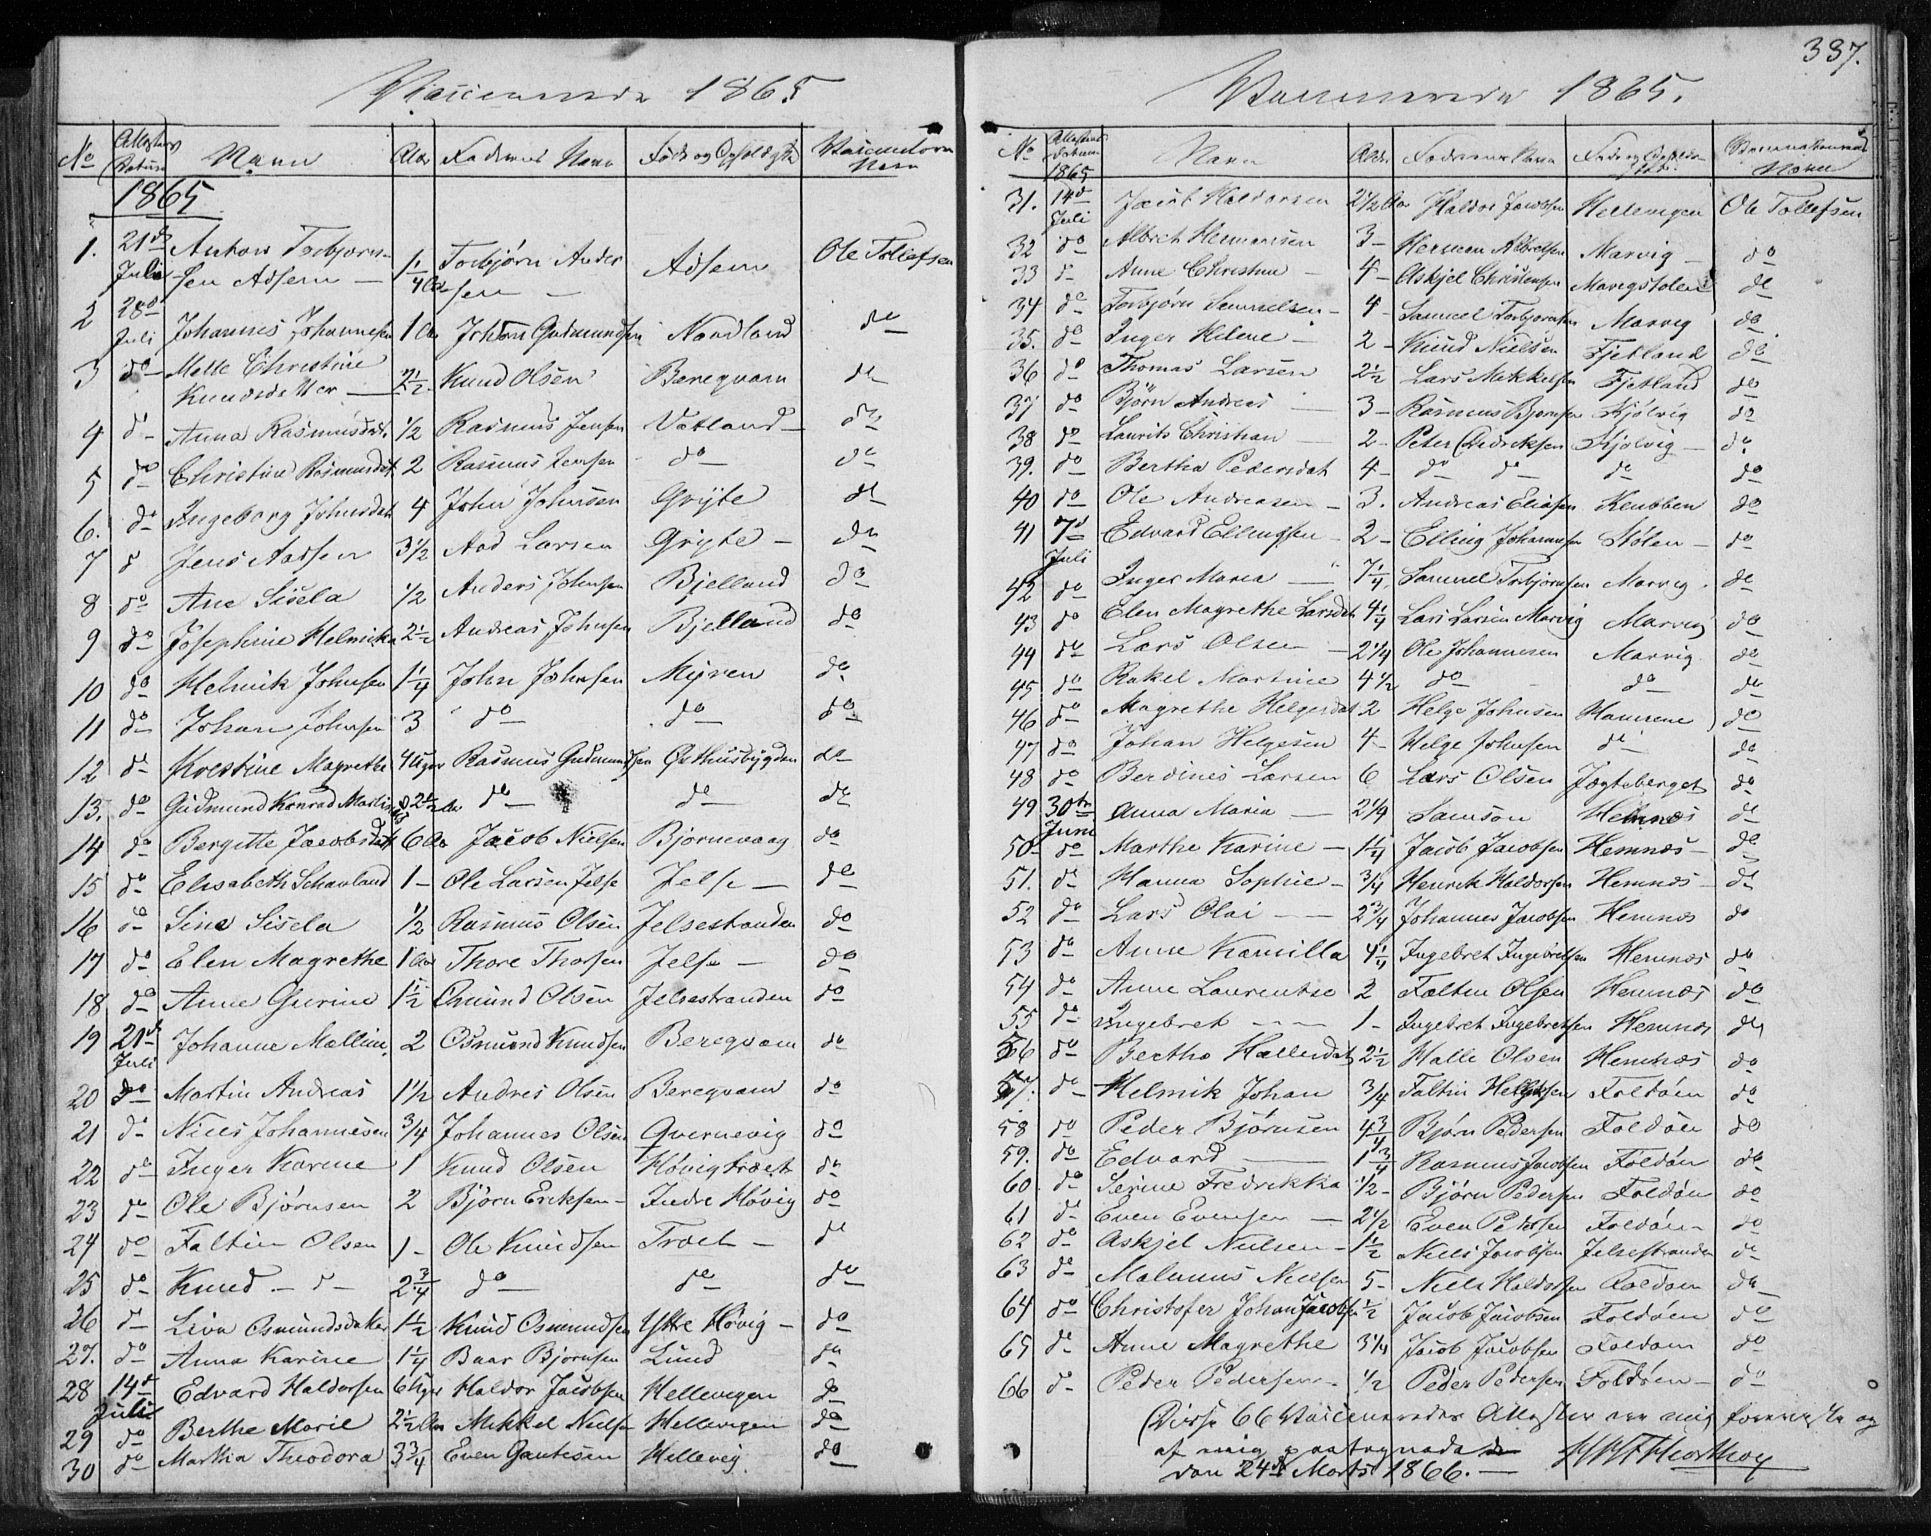 337.
Vaccinerede 1865
No | Attestens Datum | Navn | Alder | Faderens Navn | Føde og Opholdsted | Vaccinatorens Navn
1865
1. | 21d Juli | Anton Torbjørnsen Adsem | 1/4 Aar | Torbjørn Andersen | Adsem | Ole Tollefsen
2 | 28d Juli | Johannes Johannesen | 1 Aar | Gudmundsen | Nordland | do
3 | do | Mette Christine Knudsdatter | 2 1/2 | Knud Olsen | Bereqvam | do
4 | do | Anna Rasmusdat. | 1/2 | Rasmus Jensen | Vatland | do
5 | do | Christine Rasmusdat | 2 | Rasmus Jensen | do | do
6. | do | Ingeborg Johnsdat | 4 | John Johnsen | Grÿte | do
7 | d | Jens Aadsen | 3 1/2 | Aad Larsen | Grÿte | do
8 | do | Ane Sisela | 1/2 | Anders Johnsen | Bjelland | do
9 | do | Josephine Helmika | 2 1/2 | Andreas Johnsen | Bjelland | do
10 | do | Helmik Johnsen | 1 1/4 | John Johnsen | Mÿren | do
11 | do | Johan Johnsen | 3 | do | do | do
12 | do | Krestine Magrethe | 4 Uger | Rasmus Gudmundsen | Østhusbÿgden | do
13. | do | Gudmund Konrad | 2 1/2 Aar | do | do | do
14 | do | Bergitte Jacobsdat | 6 Aar | Jacob Nielsen | Bjørnevaag | do
15 | do | Elisabeth Schauland | 1 | Ole Larsen Jelse | Jelse | do
16 | do | Sine Sisela | 1/2 | Rasmus Olsen | Jelsestranden | do
17 | do | Elen Magrethe | 1 Aar | Thore Thorsen | Jelse | do
18 | do | Anne Gurine | 1 1/2 | Osmund Olsen | Jelsestranden | do
19 | 21d Juli | Johanne Malline | 2 | Osmund Knudsen | Bereqvam | do
20 | do | Martin Andreas | 1 1/2 | Andres Olsen | Bereqvam | do
21 | do | Niels Johannesen | 3/4 | Johannes Olsen | Qvernevig | do
22 | do | Inger Karine | 1 | Knud Olsen | Høvigtræet | do
23 | do | Ole Bjørnsen | 2 | Bjørn Eriksen | Indre Høvig | do
24 | do | Faltin Olsen | 1 | Ole Knudsen | Træet | do
25 | do | Knud d | 2 3/4 | do | do | do
26 | d | Liva Osmundsdatter | 1 1/2 | Knud Osmundsen | Ytre Høvig | do
27. | do | Anna Karine | 1 1/4 | Baar Bjørnsen | Lund | do
28 | 14d Juli | Edvard Haldorsen | 6 Uger | Haldor Jacobsen | Hellevigen | do
29 | do | Berthe Marie | 2 1/2 Aar | Mikkel Nielsen | Hellevigen | do
30 | do | Martha Theodora | 3 3/4 | Even Gautesen | Hellevig | do
Vaccinerede 1865.
No | Attestens Datum | Navn | Alder | Faderens Navn | Føde og Opholds Sted. | Vaccinateurens Navn
1865
31. | 14d Juli | Jacob Haldorsen | 2 1/2 Aar | Haldor Jacobsen | Hellevigen | Ole Tollefsen
32 | do | Albert Hermansen | 3 | Herman Albretsen | Marvig | do
33 | d | Anne Christine | 4 | Askjel Christensen | Marvigstølen | do
34 | do | Torbjørn Samuelsen | 4 | Samuel Torbjørnsen | Marvig | do
35. | do | Inger Helene | 2 | Knud Nielsen | Fjetland | do
36 | do | Thomas Larsen | 2 1/2 | Lars Mikkelsen | Fjetland | do
37 | do | Bjørn Andreas | 3 | Rasmus Bjørnsen | Kjølvig | do
38 | do | Laurits Christian | 2 | Peter Didriksen | Kjølvig | do
39. | do | Bertha Pedersdat | 4 | do do | do | do
40 | do | Ole Andreasen | 3. | Andreas Eliasen | Knubben | do
41 | 7d Juli | Edvard Ellingsen | 2 | Elling Johannesen | Stølen | do
42 | do | Inger Maria | 7 1/4 | Samuel Torbjørnsen | Marvig | do
43 | do | Elen Magrethe Larsdat | 4 1/4 | Lars Larsen Marvig | Marvig | do
44 | do | Lars Olsen | 2 1/4 | Ole Johannesen | Marvig | do
45 | do | Rakel Martine | 4 1/2 | do | do | do
46 | do | Magrethe Helgesdat | 2 | Helge Johnsen | Hamrene | do
47 | do | Johan Helgesen | 4 | Helge Johnsen | do | do
48 | do | Berdines Larsen | 6 | Lars Olsen | Jægtsberget | do
49 | 30te Juni | Anna Maria | 2 1/4 | Samson | Hemnæs | do
50 | do | Marthe Karine | 1 1/4 | Jacob Jacobsen | Hemnæs | do
51. | do | Hanna Sophie | 3/4 | Henrik Haldorsen | Hemnæs | do
52 | do | Lars Olai | 2 3/4 | Johannes Jacobsen | Hemnæs | do
53 | do | Anne Kamilla | 4 1/4 | Ingebret Ingebretsen | Hemnæs | do
54 | do | Anne Laurentse | 2 | Faltin Olsen | Hemnæs | do
55 | do | Ingebret | 1 | Ingebret Ingebretsen | Hemnæs | do
56 | do | Bertha Hallesdat | 2 1/2 | Halle Olsen | Hemnæs | do
57. | do | Helmik Johan | 3/4 | Faltin Helgesen | Foldøen | do
58 | do | Peder Bjørnsen | 4 3/4 | Bjørn Pedersen | Foldøen | do
59. | do | Edvard | 1 3/4 | Rasmus Jacobsen | Foldøen | do
60 | do | Serine Fredrikka | 1/2 | Bjørn Pedersen | Foldøen | do
61 | do | Even Evensen | 2 1/2 | Even Pedersen | Foldøen | do
62 | do | Askjel Nielsen | 1 1/2 | Niels Jacobsen | Jelsestranden | do
63 | do | Malenus Nielsen | 5 | Niels Haldorsen | Foldøen | do
64 | do | Christofer Johan Jacobsen | 1/2 | Jacob Jacobsen | Foldøen | do
65 | do | Anne Magrethe | 3 1/4 | Jacob Jacobsen | Foldøen | do
66 | do | Peder Pedersen | 1/2 | Peder Pedersen | Foldøen | do
Disse 66 Vaccineredes Attester ere mig foreviste og
af mig paategnede
den 24de Marts 1866.